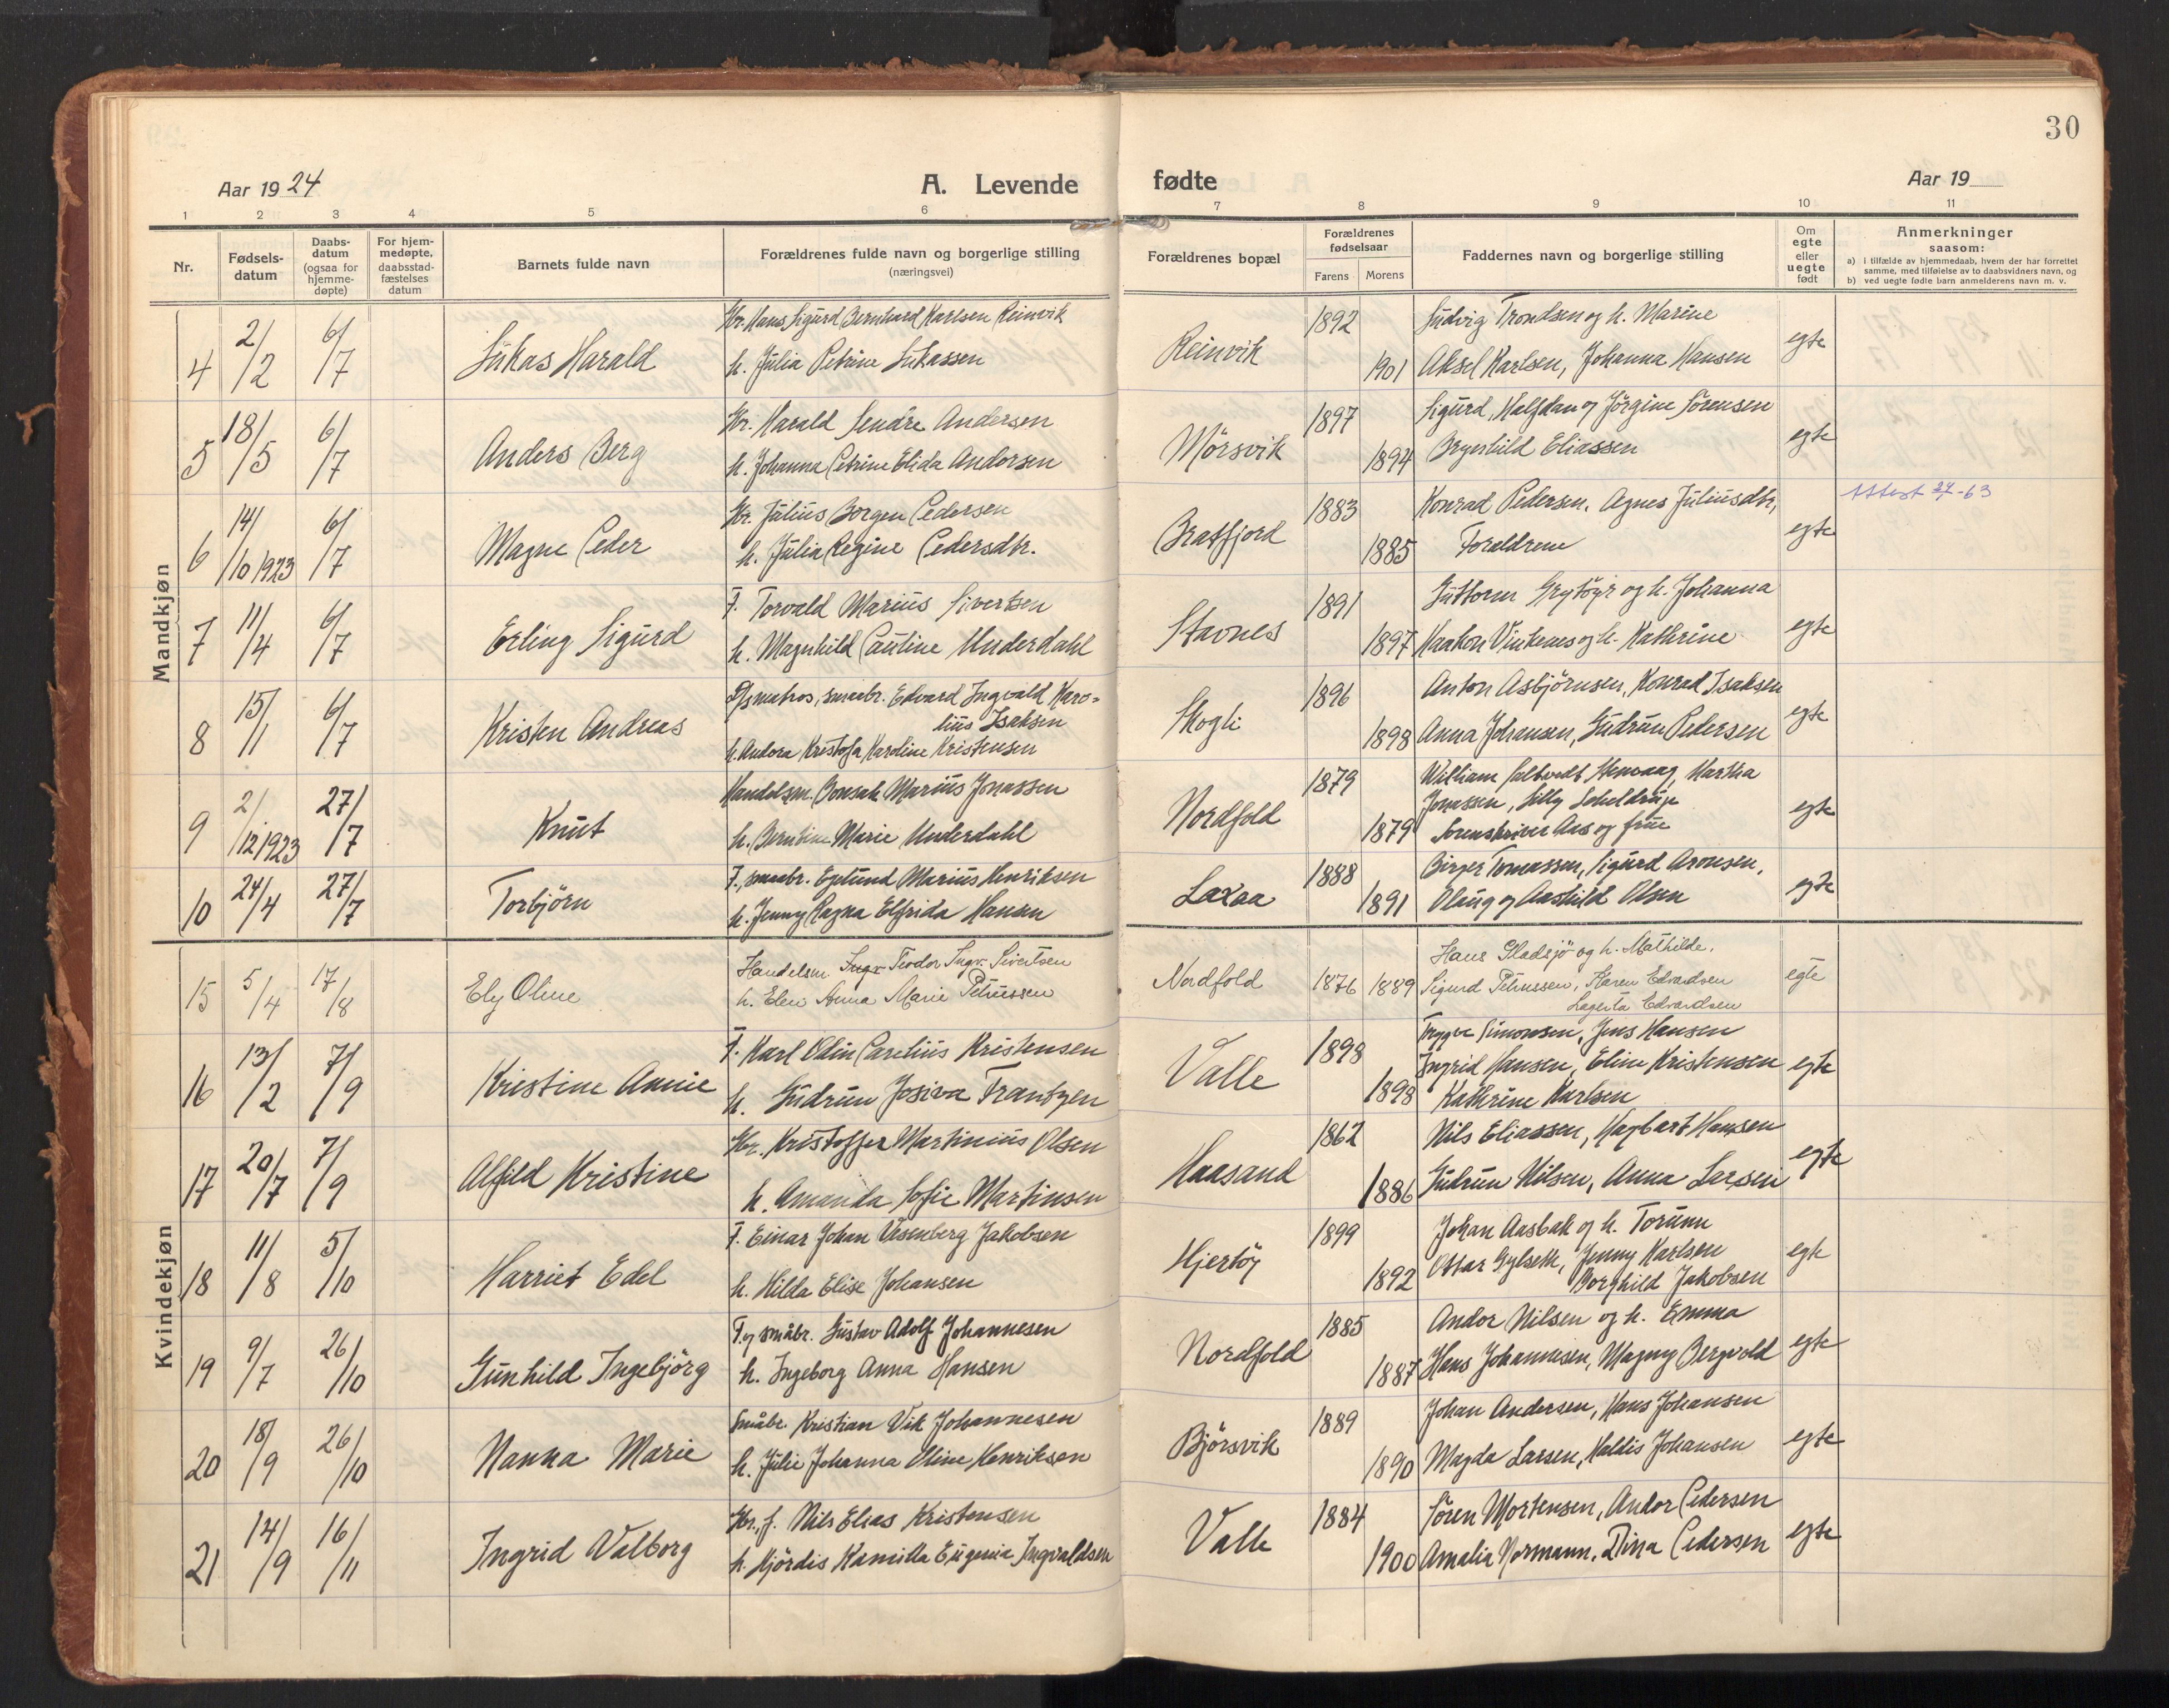 30
Aar 1924
A. Levende fødte
Aar 19
1 2 3 4 5 6 7 8 9 10 11
Nr.
Fødsels-
datum
Daabs-
datum
(ogsaa for
hjemme-
døpte)
For hjem-
medøpte,
daabsstad-
fæstelses
datum
Barnets fulde navn
Forældrenes fulde navn og borgerlige stilling
(næringsvei)
Forældrenes bopæl
Forældrenes
fødselsaar
Farens Morens
Faddernes navn og borgerlige stilling
Om
egte
eller
uegte
født
Anmerkninger
saasom:
a) i tilfælde av hjemmedaab, hvem der har forrettet
samme, med tilføielse av to daabsvidners navn, og
b) ved uegte fødte barn anmelderens navn m. v.
Mandkjøn
4 2/2 6/7 Lukas Harald
Gbr. Hans Sigurd Bernhard Karlsen Reinvik
h. Julia Petrine Lukassen
Reinvik 1892 1901
Ludvig Trondsen og h. Marine
Aksel Karlsen, Johanna Hansen
egte
5 18/5 6/7 Anders Berg
Gbr. Harald Sendre Andersen
h. Johanna Petrine Elida Andersen
Mørsvik 1897 1894
Sigurd, Halfdan og Jørgine Sørensen
Brynhild Eliassen
egte
6 14/10 1923 6/7 Magne Peder
Gbr. Julius Borgen Pedersen
h. Julia Regine Pedersdtr.
Bratfjord 1883 1885
Konrad Pedersen, Agnes Juliusdtr,
Forældrene
egte
Attest 24/-63
7 11/4 6/7 Erling Sigurd
F. Torvald Marius Sivertsen
h. Magnhild Pauline Underdahl
Stavnes 1891 1897
Guttorm Grytöyr og h. Johanna
Haakon Vinkenes og h. Kathrine
egte
8 15/1 6/7 Kristen Andreas
D/smatros, smaabr. Edvard Ingvald Karo-
lius Isaksen
h. Andora Kristofa Karoline Kristensen
Skogli 1896 1898
Anton Asbjörnsen, Konrad Isaksen
Anna Johansen, Gudrun Pedersen
egte
9 2/12 1923 27/7 Knut
Handelsm. Bonsak Marius Jonassen
h. Berntine Marie Underdahl
Nordfold 1879 1879
William Hemaag, Martha
Jonassen, Lilly Scheldrup
Sorenskriver Aas og frue
egte
10 24/4 27/7 Torbjörn
F., smaabr. Egelund Marius Henriksen
h. Jenny Ragna Elfrida Hansen
Laxaa 1888 1891
Birger Tomassen, Sigurd Aronsen,
Olaug og Aashild Olsen
egte
Kvindekjøn
15 5/4 17/8 Ely Oline
Handelsm Ingv. Teodor Ingv. Sivertsen
h. Elen Anna Marie Petrussen
Nordfold 1876 1889
Hans Gladsjö og h. Mathilde.
Sigurd Petrussen, Karen Edvardsen
Lagerta Edvardsen
egte
16 13/2 7/9 Kristine Annie
F. Karl Odin Parelius Kristensen
h. Gudrun Josiva Trantzen
Valle 1898 1898
Trygve Simonsen, Jens Hansen
Ingrid Hansen, Eline Kristensen
Kathrine Karlsen
egte
17 20/7 7/9 Alfild Kristine
Gbr. Kristoffer Martinius Olsen
h. Amanda Sofie Martinsen
Haasand 1862 1886
Nils Eliassen, Hagbart Hansen
Gudrun Nilsen, Anna Larsen
egte
18 11/8 5/10 Harriet Edel
F. Einar Johan Vesenberg Jakobsen
h. Hilda Elise Johansen
Hjertöy 1899 1892
Johan Aasbak og h. Torunn
Ottar Gylseth, Jenny Karlsen
Borghild Jakobsen
egte
19 9/7 26/10 Gunhild Ingebjörg
F. og småbr. Gustav Adolf Johannesen
h. Ingeborg Anna Hansen
Nordfold 1885 1887
Andor Nilsen og h. Emma
Hans Johannesen, Magny Bergvold
egte
20 18/9 26/10 Nanna Marie
Småbr. Kristian Vik Johannesen
h. Julie Johanna Oline Henriksen
Björsvik 1889 1890
Johan Andersen, Hans Johansen
Magda Larsen, Haldis Johansen
egte
21 14/9 16/11 Ingrid Valborg
Gbr., f. Nils Elias Kristensen
h. Hjördis Kamilla Eugenia Ingvaldsen
Valle 1884 1900
Sören Mortensen, Andor Pedersen
Amalia Normann, Dina Pedersen
egte